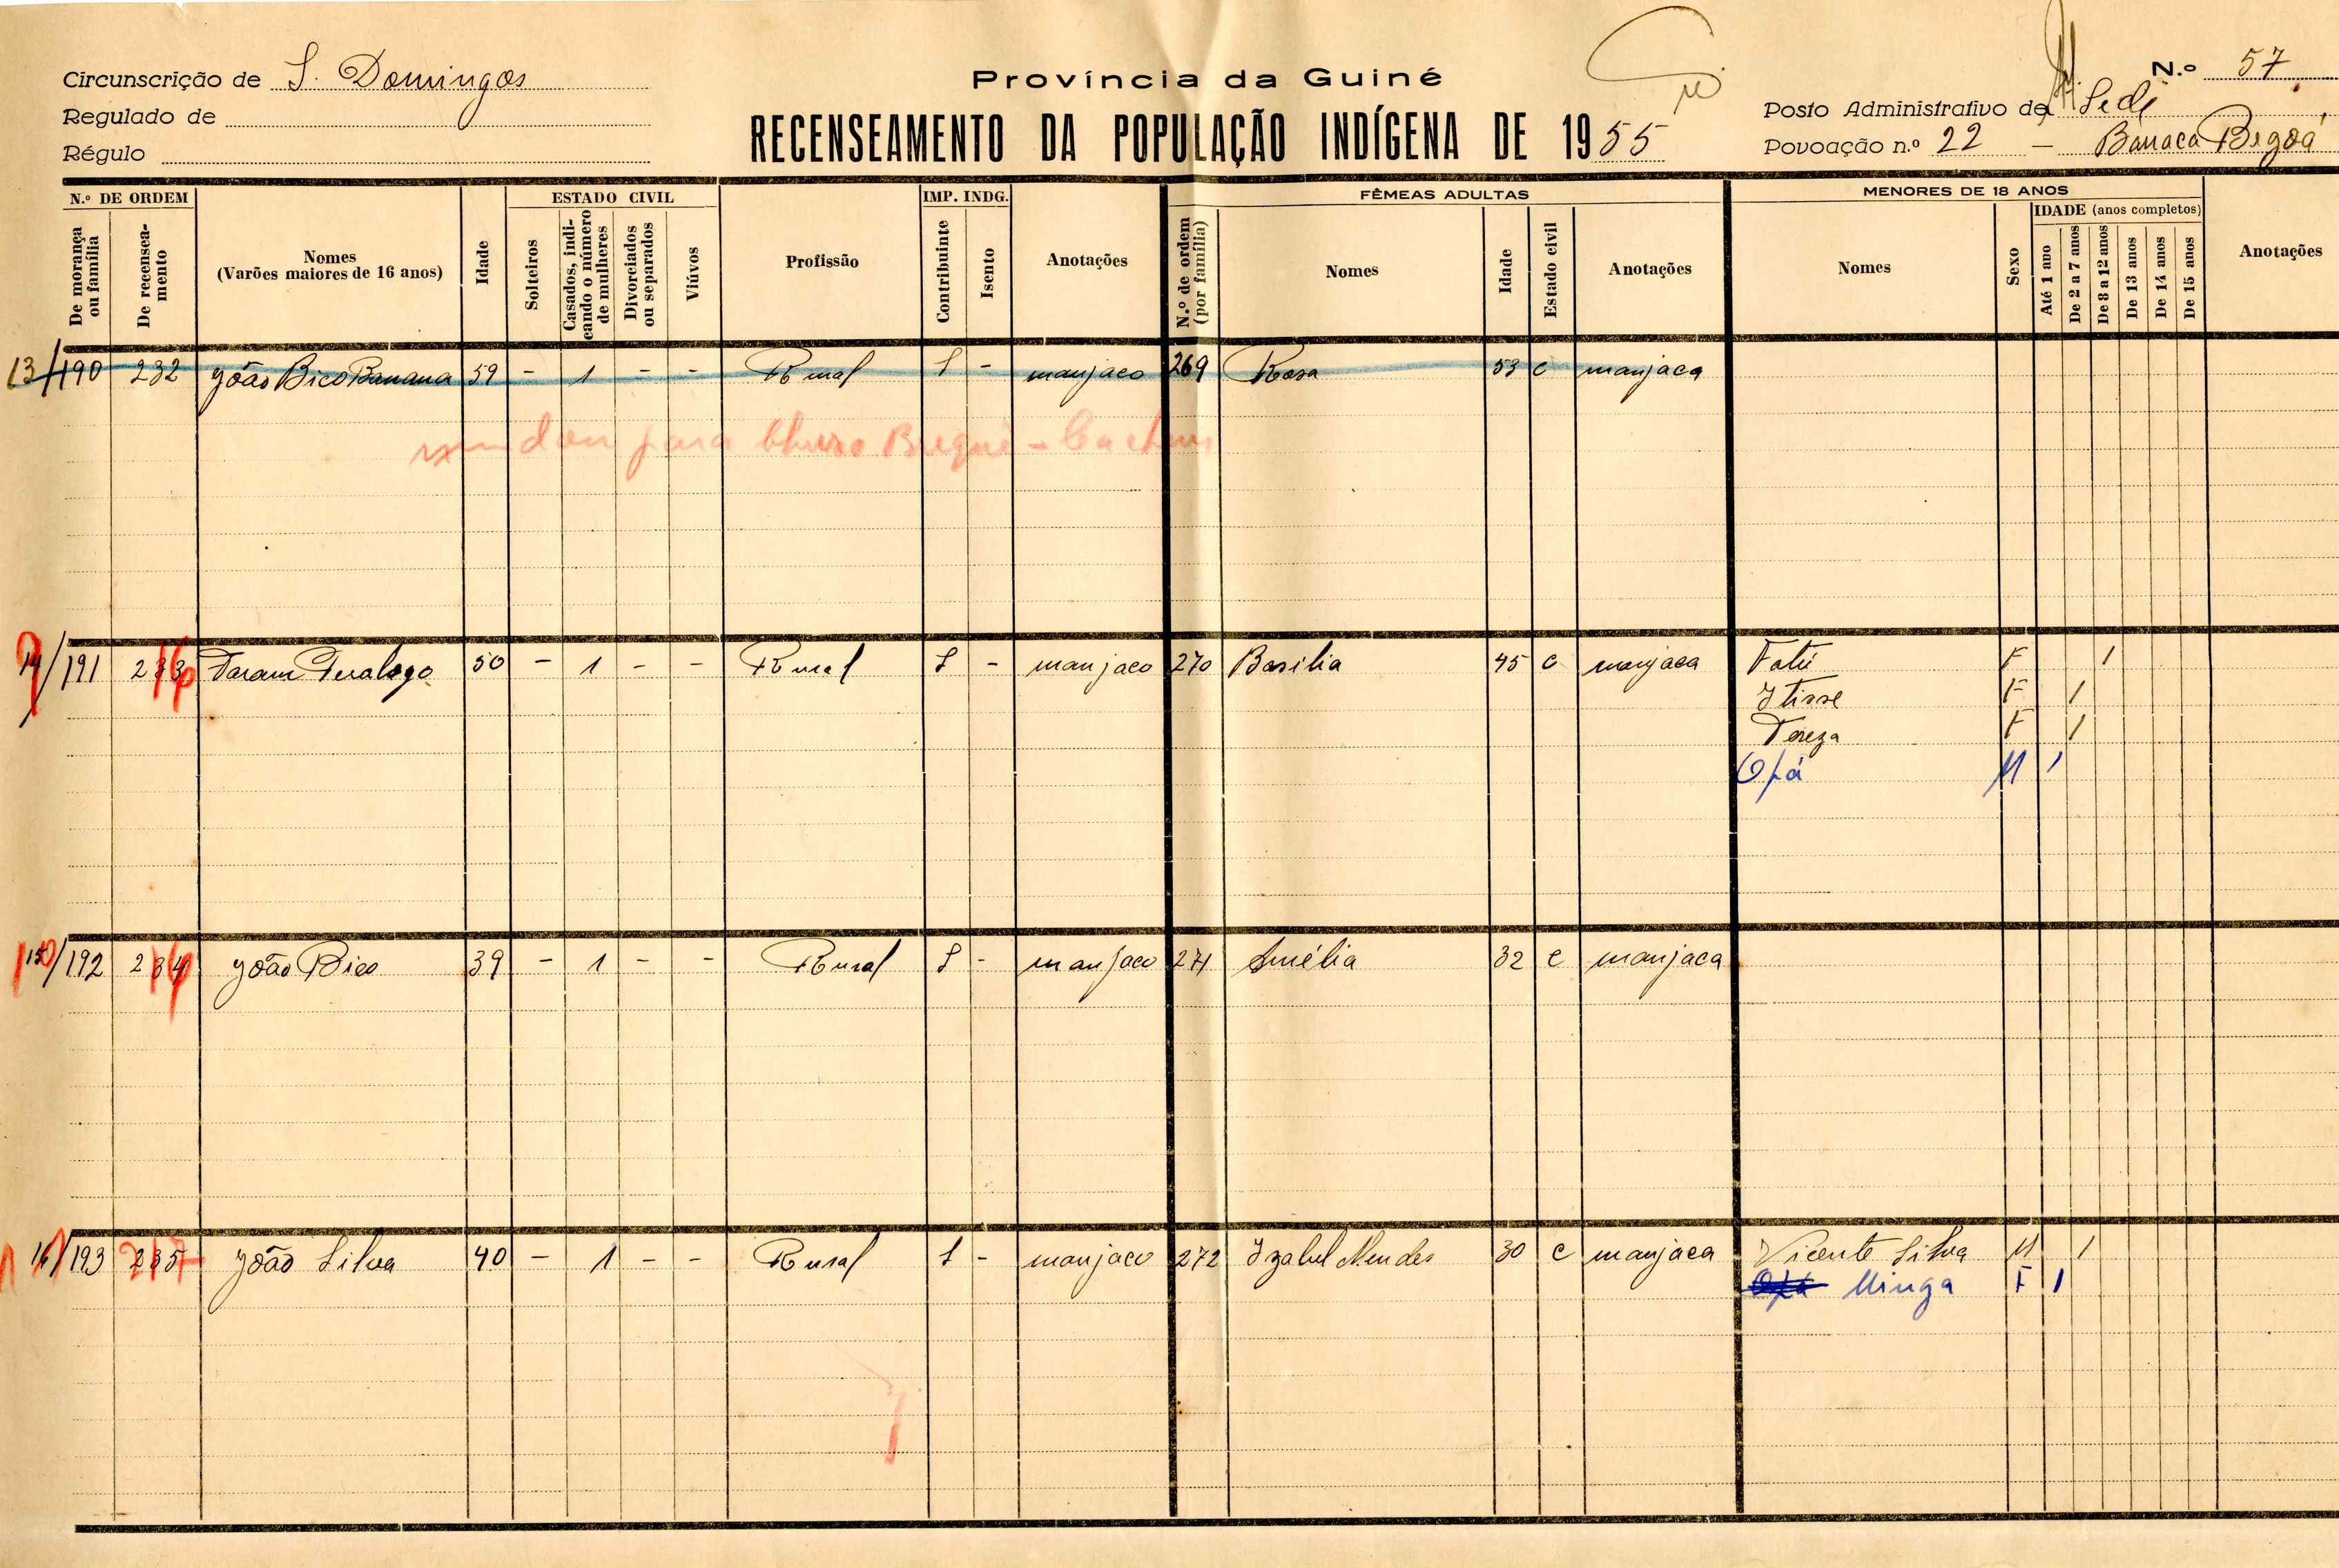 Circunscrição de S. Domingos
Regulado de
Régulo
Província da Guiné
RECENSEAMENTO DA POPULAÇÃO INDÍGENA DE 1955
N.º 57
Posto Administrativo de Sede
Povoação n.º 22 — Barraca Begoá
N.º DE ORDEM
De morança ou família
De recenseamento
Nomes
(Varões maiores de 16 anos)
Idade
ESTADO CIVIL
Solteiros
Casados, indicando o número de mulheres
Divorciados ou separados
Viúvos
Profissão
IMP. INDG.
Contribuinte
Isento
Anotações
FÊMEAS ADULTAS
N.º de ordem (por família)
Nomes
Idade
Estado civil
Anotações
MENORES DE 18 ANOS
Nomes
Sexo
IDADE (anos completos)
Até 1 ano
De 2 a 7 anos
De 8 a 12 anos
De 13 anos
De 14 anos
De 15 anos
Anotações
13/190 232 João Bico Banana 59 - 1 - - Rural 1 - manjaco 269 Rosa 53 C manjaca
mudou para Churo Brequê - Cacheu
14/191 233 50 - 1 - - Rural 1 - manjaco 270 Basilia 45 C manjaca Fatú F 1
Itisse F 1
Tereza F 1
Opá M 1
15/192 234 João Bico 39 - 1 - - Rural 1 - manjaco 271 Amélia 32 C manjaca
16/193 235 João Silva 40 - 1 - - Rural 1 - manjaco 272 Izabel Mendes 30 C manjaca Vicente Silva M 1
Minga F 1